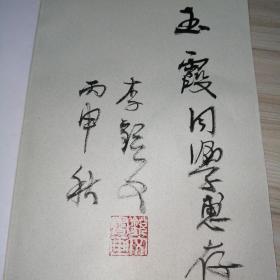 玉霞同学惠存
李
丙申秋